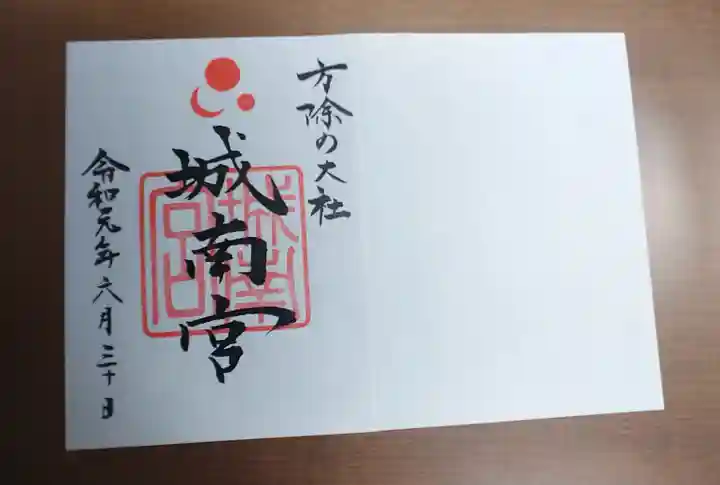 方除の大社
城南宮
令和元年六月三十日
城南
宮印